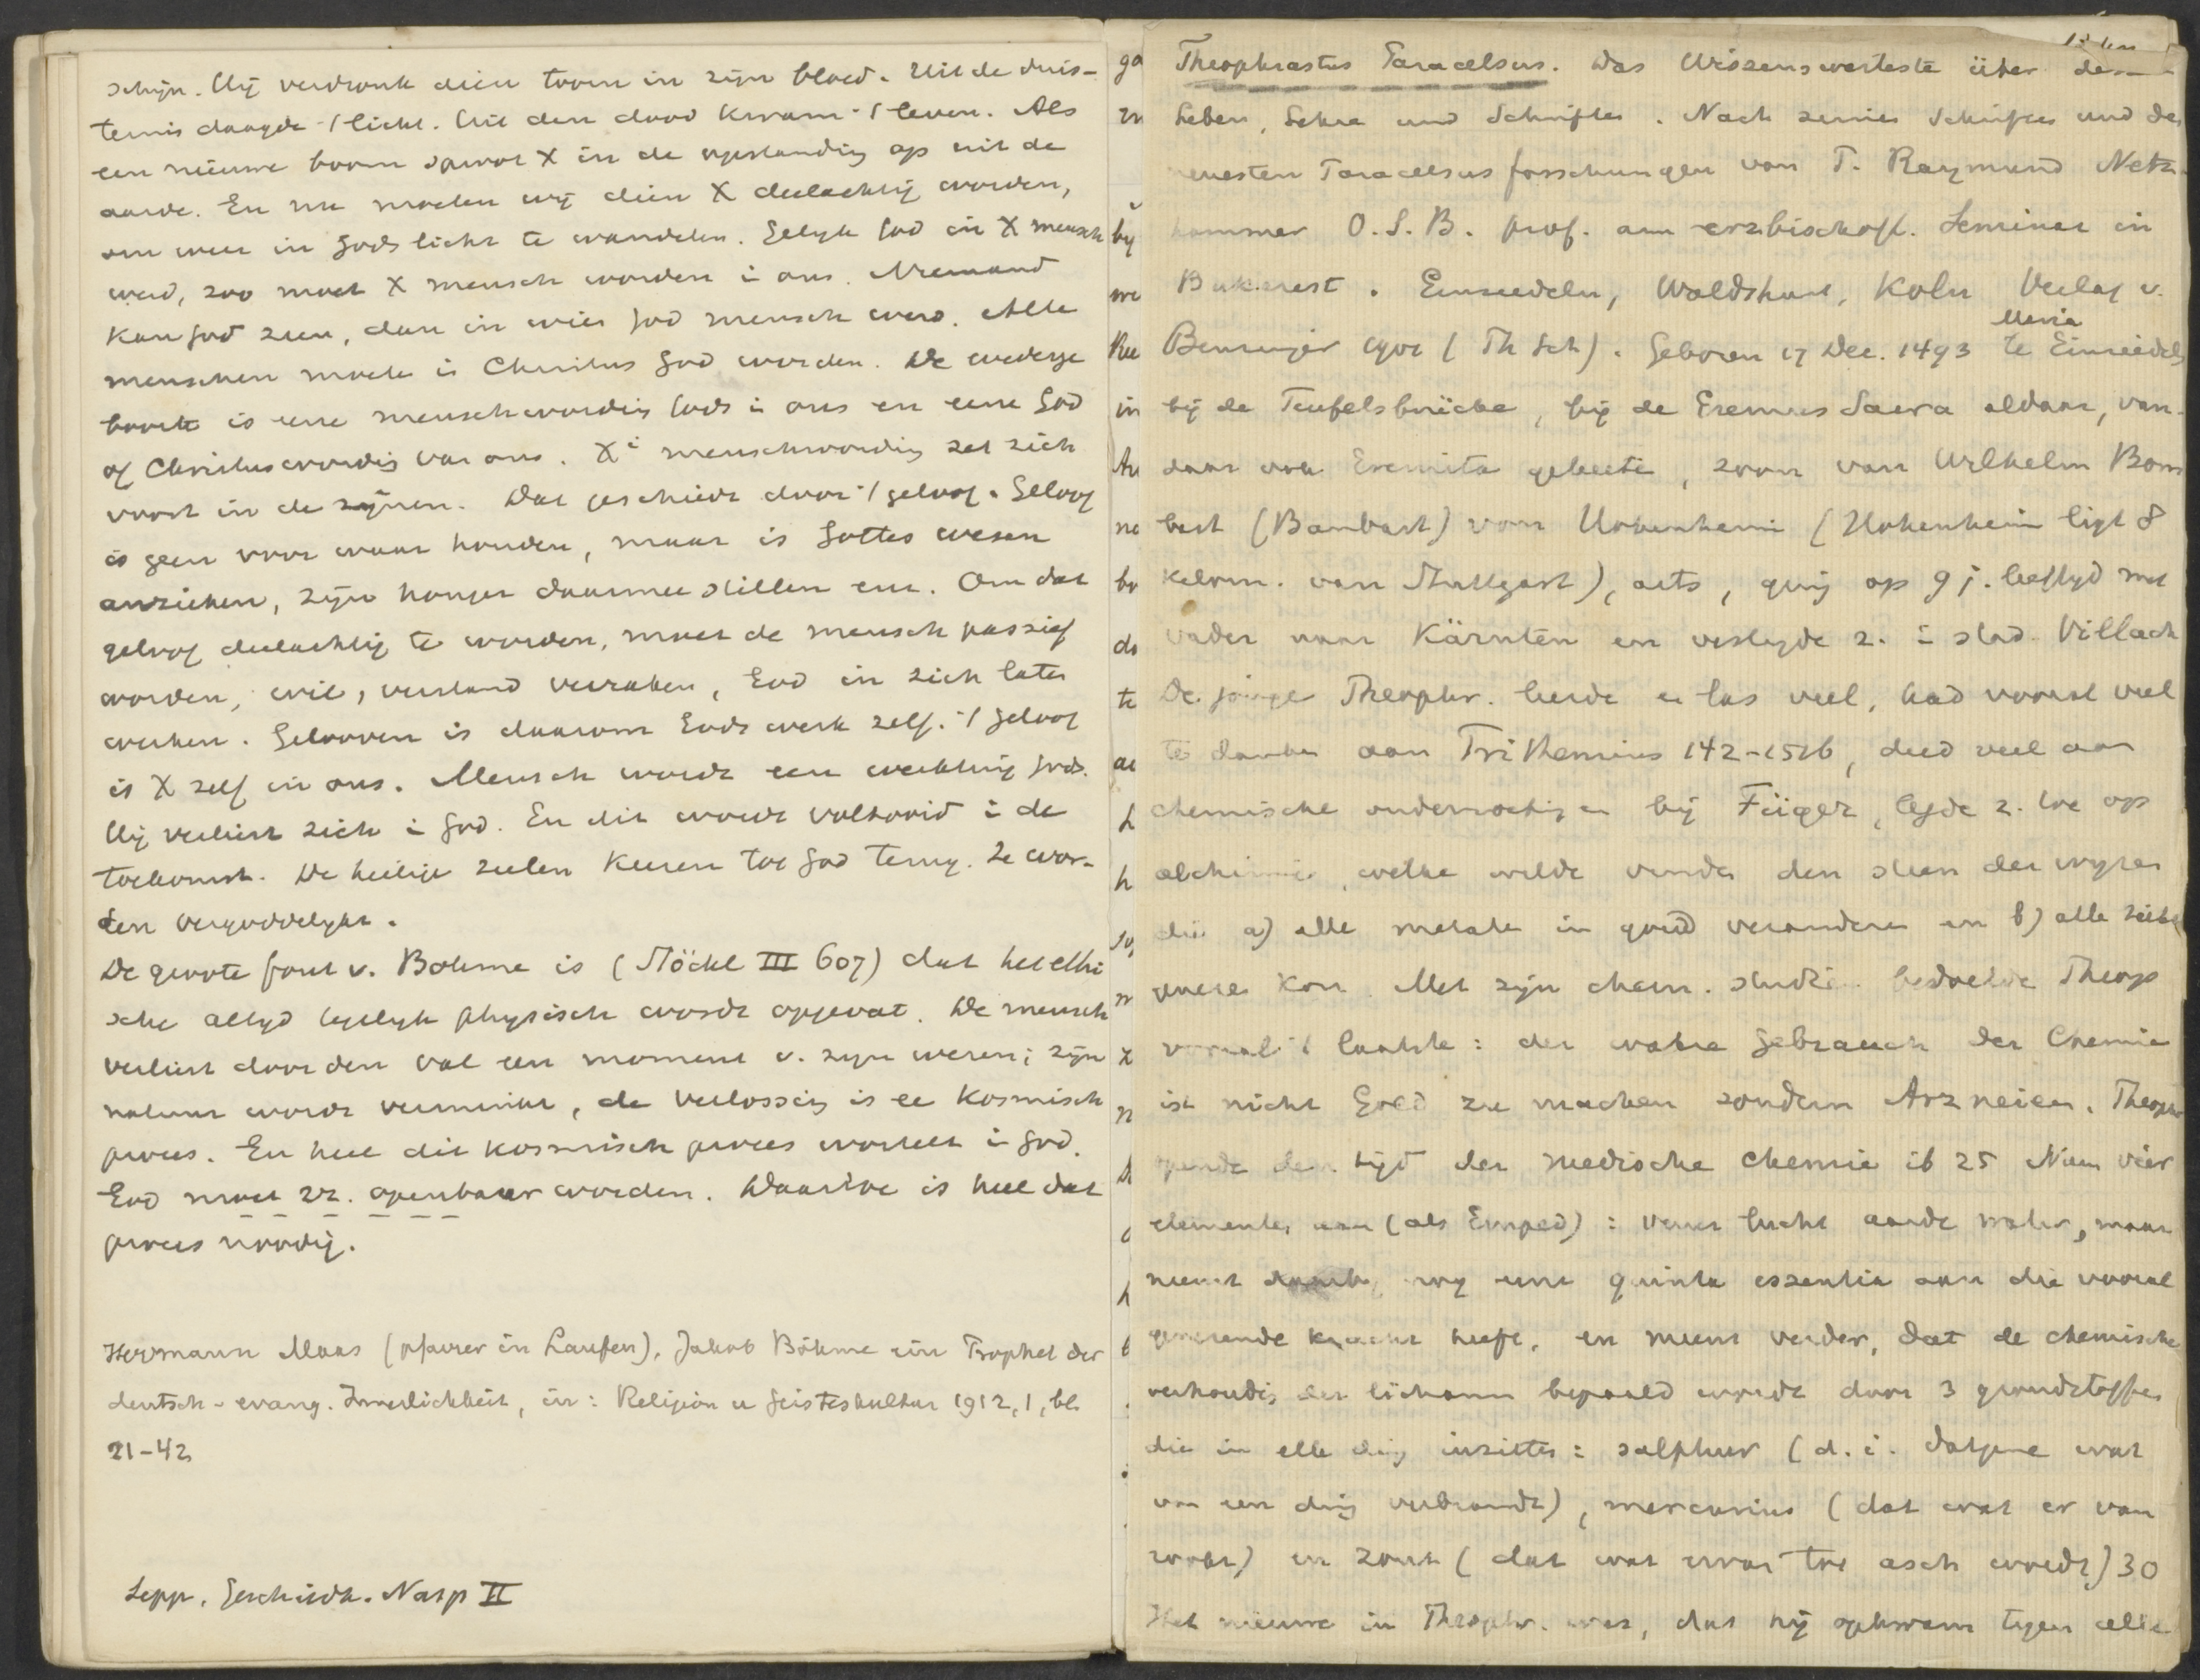 schijn. Hij verdronk dien toorn in zijn bloed. Uit de duis-
ternis daagde 't licht. Uit den dood kwam 't leven. Als
een nieuwe boom sproot X in de opstanding op uit de
aarde. En nu moeten wij dien X deelachtig worden,
om weer in Gods licht te wandelen. Gelijk God in X mensch
werd, zoo moet X mensch worden i ons. Niemand
kan God zien, dan in wien God mensch werd. Alle
menschen moete i Christus God worden. De wederge
boorte is eene menschwording Gods i ons en eene God
of Christuswording van ons. Xi menschwording zet zich
voort in de zijnen. Dat geschiedt door 't geloof. Geloof
is geen voor waar houden, maar is Gottes wesen
anziehen, zijn honger daarmee stillen enz. Om dat
geloof deelachtig te worden, moet de mensch passief
worden, wil, verstand verzaken, God in zich laten
werken. Gelooven is daarom Gods werk zelf. 't Geloof
is X zelf in ons. Mensch wordt een werktuig Gods.
Hij verliest zich i God. En dit wordt voltooid i de
toekomst. De heilige zielen keeren tot God terug. Ze wor-
den vergoddelykt.
De groote fout v. Böhme is (Stöckl III 607) dat het ethi
sche altyd tegelyk physisch wordt opgevat. De mensch
verliest door den val een moment v. zyn wezen; zijn
natuur wordt verminkt, de verlossing is ee kosmisch
proces. En heel dit kosmisch proces wortelt i God.
God moet zr. openbaar worden. Daartoe is heel dat
proces noodig.
Hermann Maas (pfarrer in Laufen), Jakob Böhme ein Prophet der
deutsch-evang. Innerlichkeit, in: Religion u Geisteskultur 1912, 1, bl.
21-42
Sepp, Geschiedk. Nasp II
Theophrastus Paracelsus. Das Wissenswerteste über dessen
Leben, Lehre und Schriften. Nach seinen Schriften und den
neuesten Paracelsusforschungen von P. Raymund Netz-
hammer O.S.B. prof. am erzbischöfl. Seminar in
Bukarest. Einsiedeln, Waldshut, Koln Verlag v.
Benziger 1901 (Th Sch). Geboren 17 Dec. 1493 te Maria Einsiedeln
bij de Teufelsbrücke, bij de Eremus Sacra aldaar, van-
daar ook Eremita geheeten, zoon van Wilhelm Bom
bast (Bambast) von Hohenheim (Hohenheim ligt 8
kelom. van Stuttgart), arts, ging op 9 j. leeftyd met
vader naar Kärnten en vestigde z. i stad Villach
De jonge Theophr. leerde e las veel, had vooral veel
te danken aan Trithemius 142-1516, deed veel aan
chemische onderzoekingen bij Füger, legde z. toe op
alchimie, welke wilde vinden den steen der wyzen
die a) alle metale in goud veranderen en b) alle ziekte
genezen kon. Met zijn chem. studiën bedoelde Theop
vooral 't laatste: der wahre Gebrauch der Chemie
ist nicht Gold zu machen sondern Arzneien. Theophr
opende den tijd der medische chemie ib 25 Nam vier
elementen aan (als Emped): vuur lucht aarde water, maar
neemt nog eene quinta essentia aan die vooral
genezende kracht heeft, en meent verder, dat de chemische
verhouding der lichamen bepaald wordt door 3 grondstoffen
die in elk ding inzitten: sulphur (d.i. datgene wat
van een ding verbrandt), mercurius (dat wat er van
rookt) en zout (dat wat ervan tot asch wordt) 30
Het nieuwe in Theophr. was, dat hij opkwam tegen alle